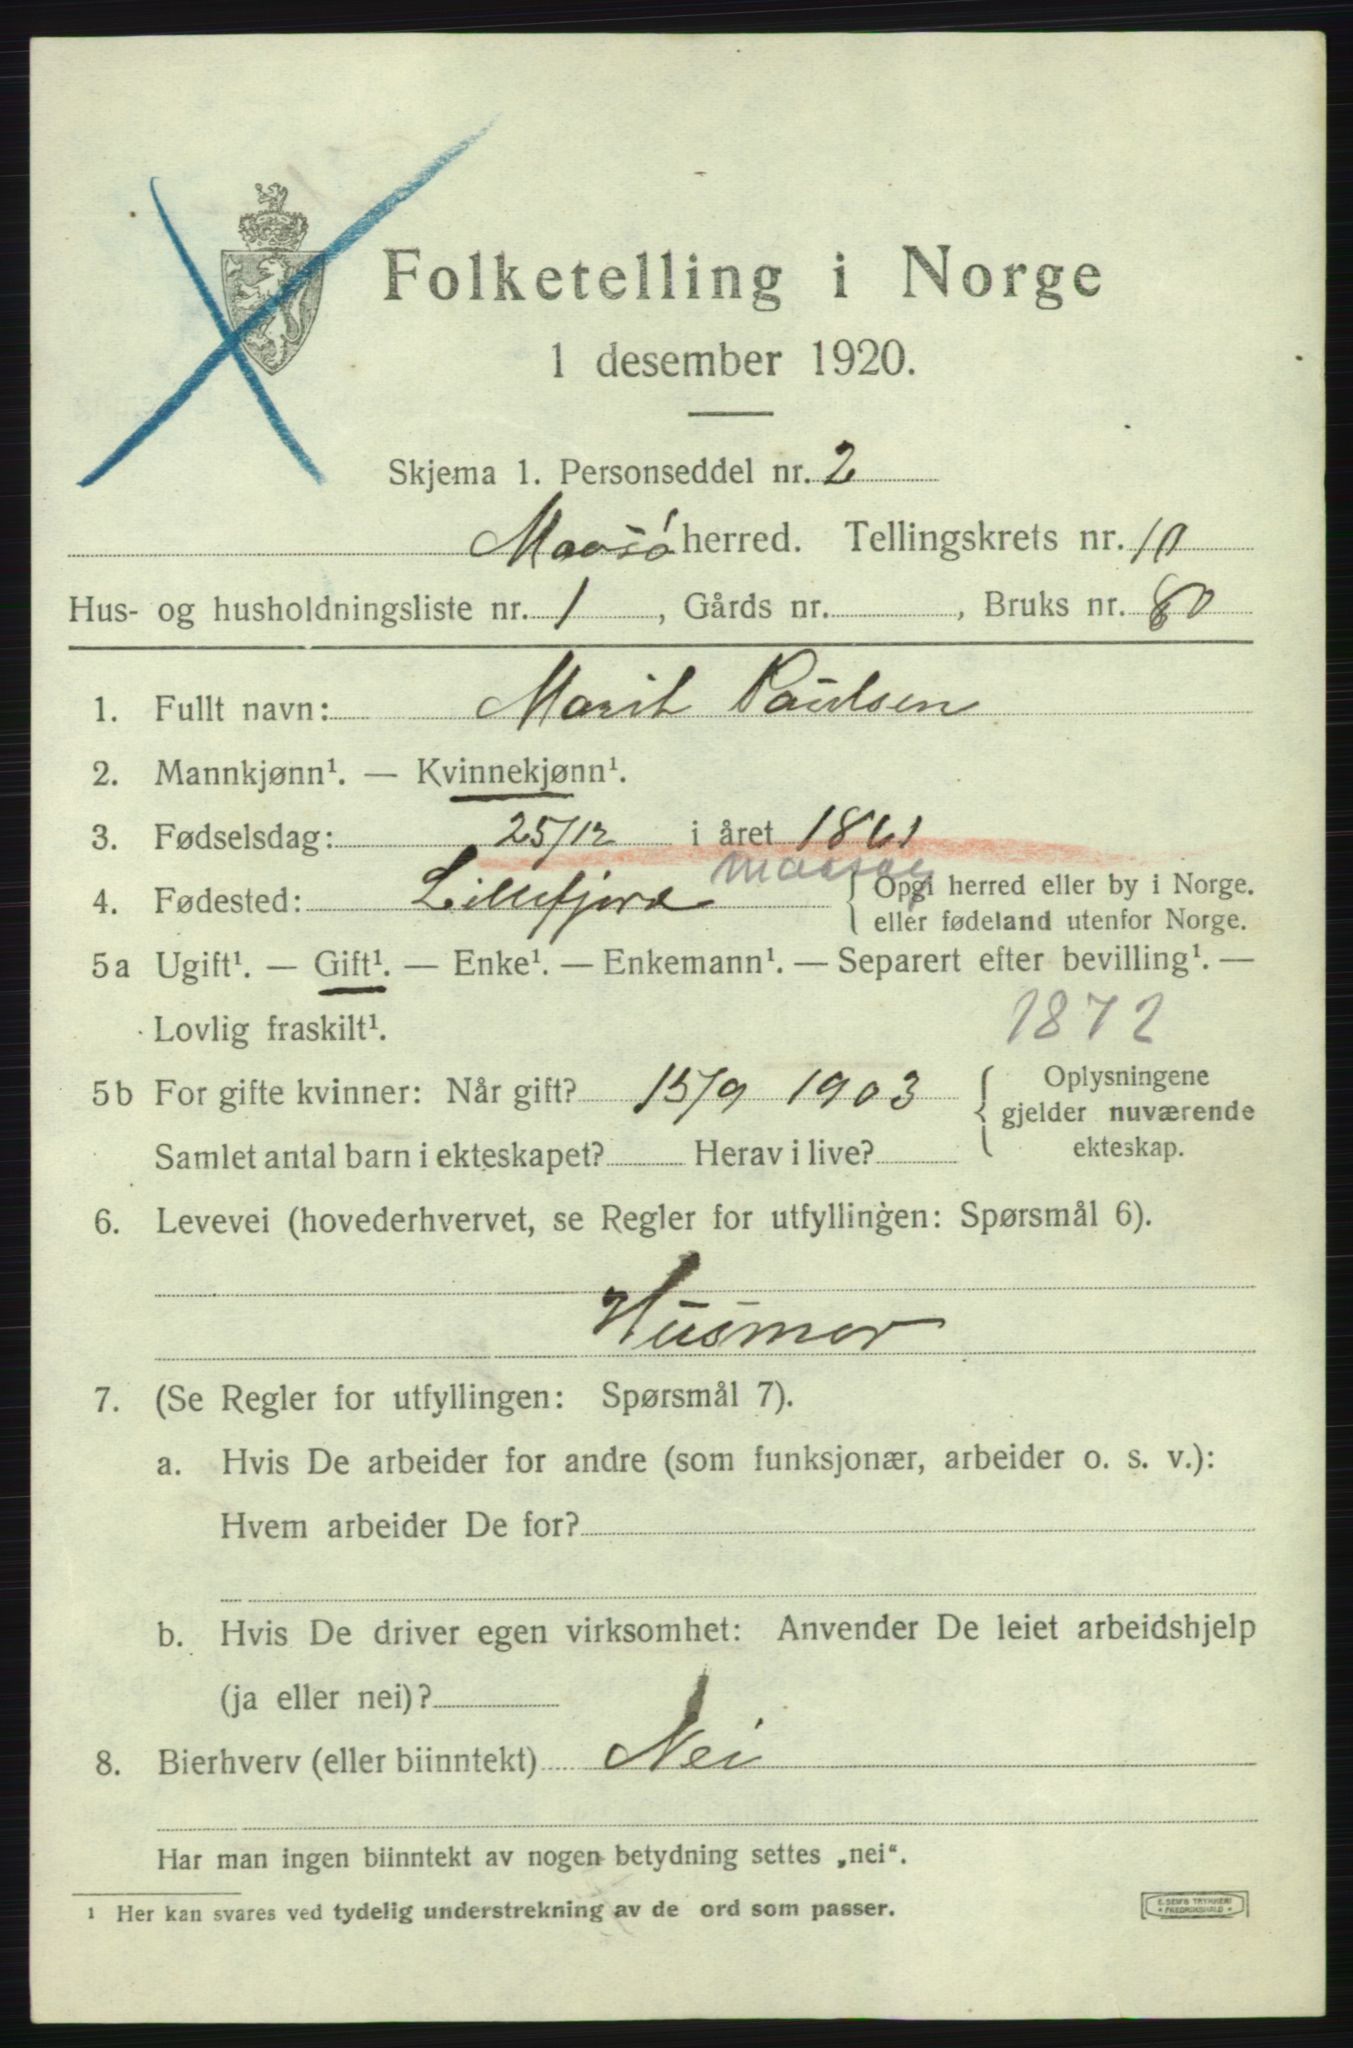 Folketelling i Norge
1 desember 1920.
Skjema 1. Personseddel nr. 2
Maasø herred. Tellingskrets nr. 10
Hus- og husholdningsliste nr. 1, Gårds nr. , Bruks nr. 80
1. Fullt navn: Marit Paulsen
2. Mannkjønn¹. — Kvinnekjønn¹.
3. Fødselsdag: 25/12 i året 1861
Maasøy
4. Fødested: Lillefjord { Opgi herred eller by i Norge.
eller fødeland utenfor Norge.
5a Ugift¹. — Gift¹. — Enke¹. — Enkemann¹. — Separert efter bevilling¹. —
Lovlig fraskilt¹. 1872
5b For gifte kvinner: Når gift? 15/9 1903 { Oplysningene
gjelder nuværende
Samlet antal barn i ekteskapet? Herav i live? ekteskap.
6. Levevei (hovederhvervet, se Regler for utfyllingen: Spørsmål 6).
Husmor
7. (Se Regler for utfyllingen: Spørsmål 7).
a. Hvis De arbeider for andre (som funksjonær, arbeider o. s. v.):
Hvem arbeider De for?
b. Hvis De driver egen virksomhet: Anvender De leiet arbeidshjelp
(ja eller nei)?
8. Bierhverv (eller biinntekt) Nei
Har man ingen biinntekt av nogen betydning settes „nei“.
¹ Her kan svares ved tydelig understrekning av de ord som passer.
E. SEM'S TRYKKERI
• FREDRIKSHALD •